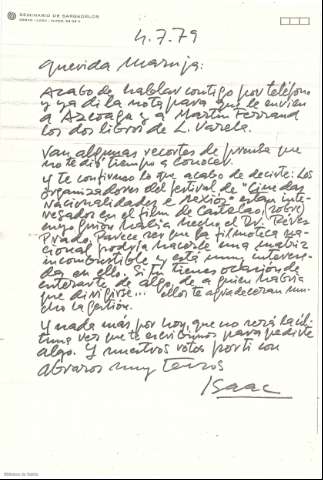 SEMINARIO DE SARGADELOS
4.7.79
Querida Maruja:
Acabo de hablar contigo por teléfono
y ya di la nota para que le envien
a Azcoaga y a Martín Ferrand
los dos libros de L. Varela.
Van algunas recortes de prensa que
no te dió tiempo a conocer.
Y te confirmo lo que acabo de decirte: Los
organizadores del festival de "Cine das
Nacionalidades e Rexións" están inte-
resados en el film de Castelao, sobre
cuyo guion había hecho el Dr. Peves
Prado. Parece ser que la filmoteca na-
cional podría hacerle una matriz
incombustible y está muy interesa-
da en ello. Si tu tienes ocasión de
enterarte de algo, de a quien habría
que dirigirse... ellos te agradecerán mu-
cho la gestión.
Y nada más por hoy, que no será la úl-
tima vez que te escribimos para pedirte
algo. Y nuestros votos por ti con
abrazos muy tensos
Isaac
Biblioteca de Galicia